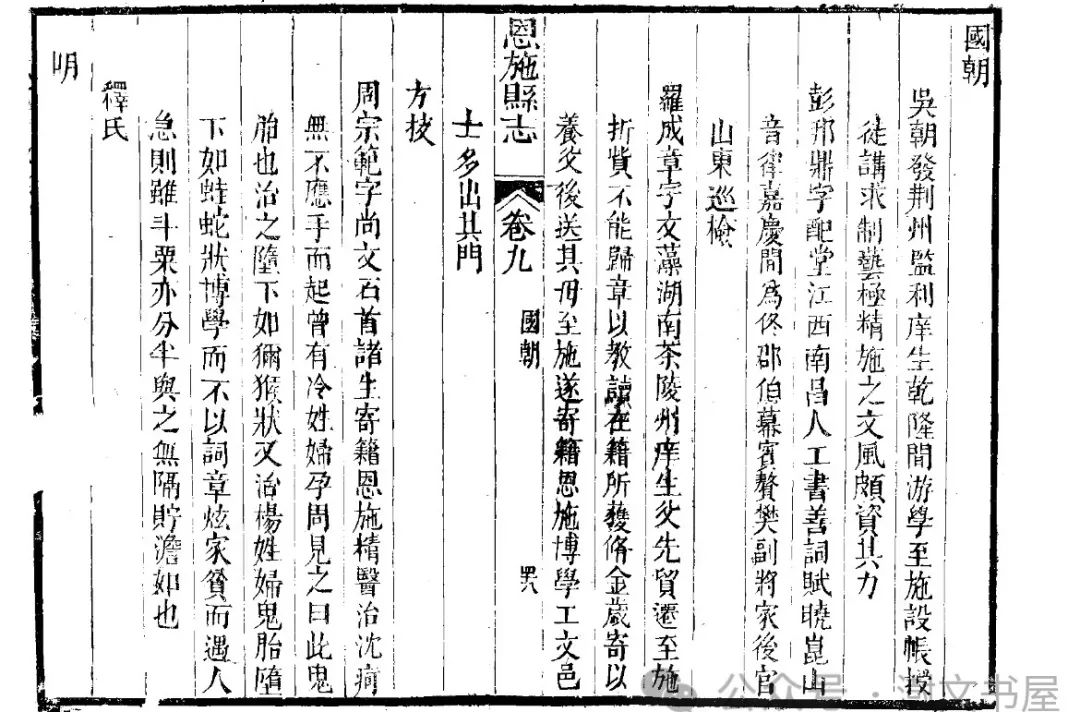 國朝
吳朝發荆州監利庠生乾隆間游學至施設帳授
徒講求制藝極精施之文風頗資其力
彭那鼎字配堂江西南昌人工書善詞賦曉崑山
音律嘉慶間爲佟郡伯幕賓贅樊副將家後官
山東巡檢
羅成章字文藻湖南茶陵州庠生父先貿遷至施
折貲不能歸章以教讀在籍所獲脩金歲寄以
養父後送其母至施遂寄籍恩施博學工文邑
恩施縣志 卷九 國朝 罘
士多出其門
方技
周宗範字尚文石首諸生寄籍恩施精醫治沈疴
無不應手而起曾有冷姓婦孕周見之曰此鬼
胎也治之墮下如獼猴狀又治楊姓婦鬼胎墮
下如蛙蛇狀博學而不以詞章炫家貧而遇人
急則雖斗粟亦分半與之無隔貯澹如也
釋氏
明
公众号·河文书屋